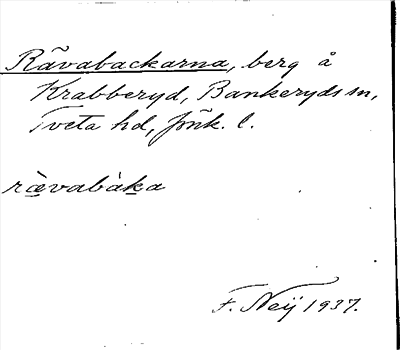 Rävabackarna, berg å
Krabberyd, Bankeryds sn,
Tveta hd, Jönk. l.
rävabàka
F. Neij 1937.